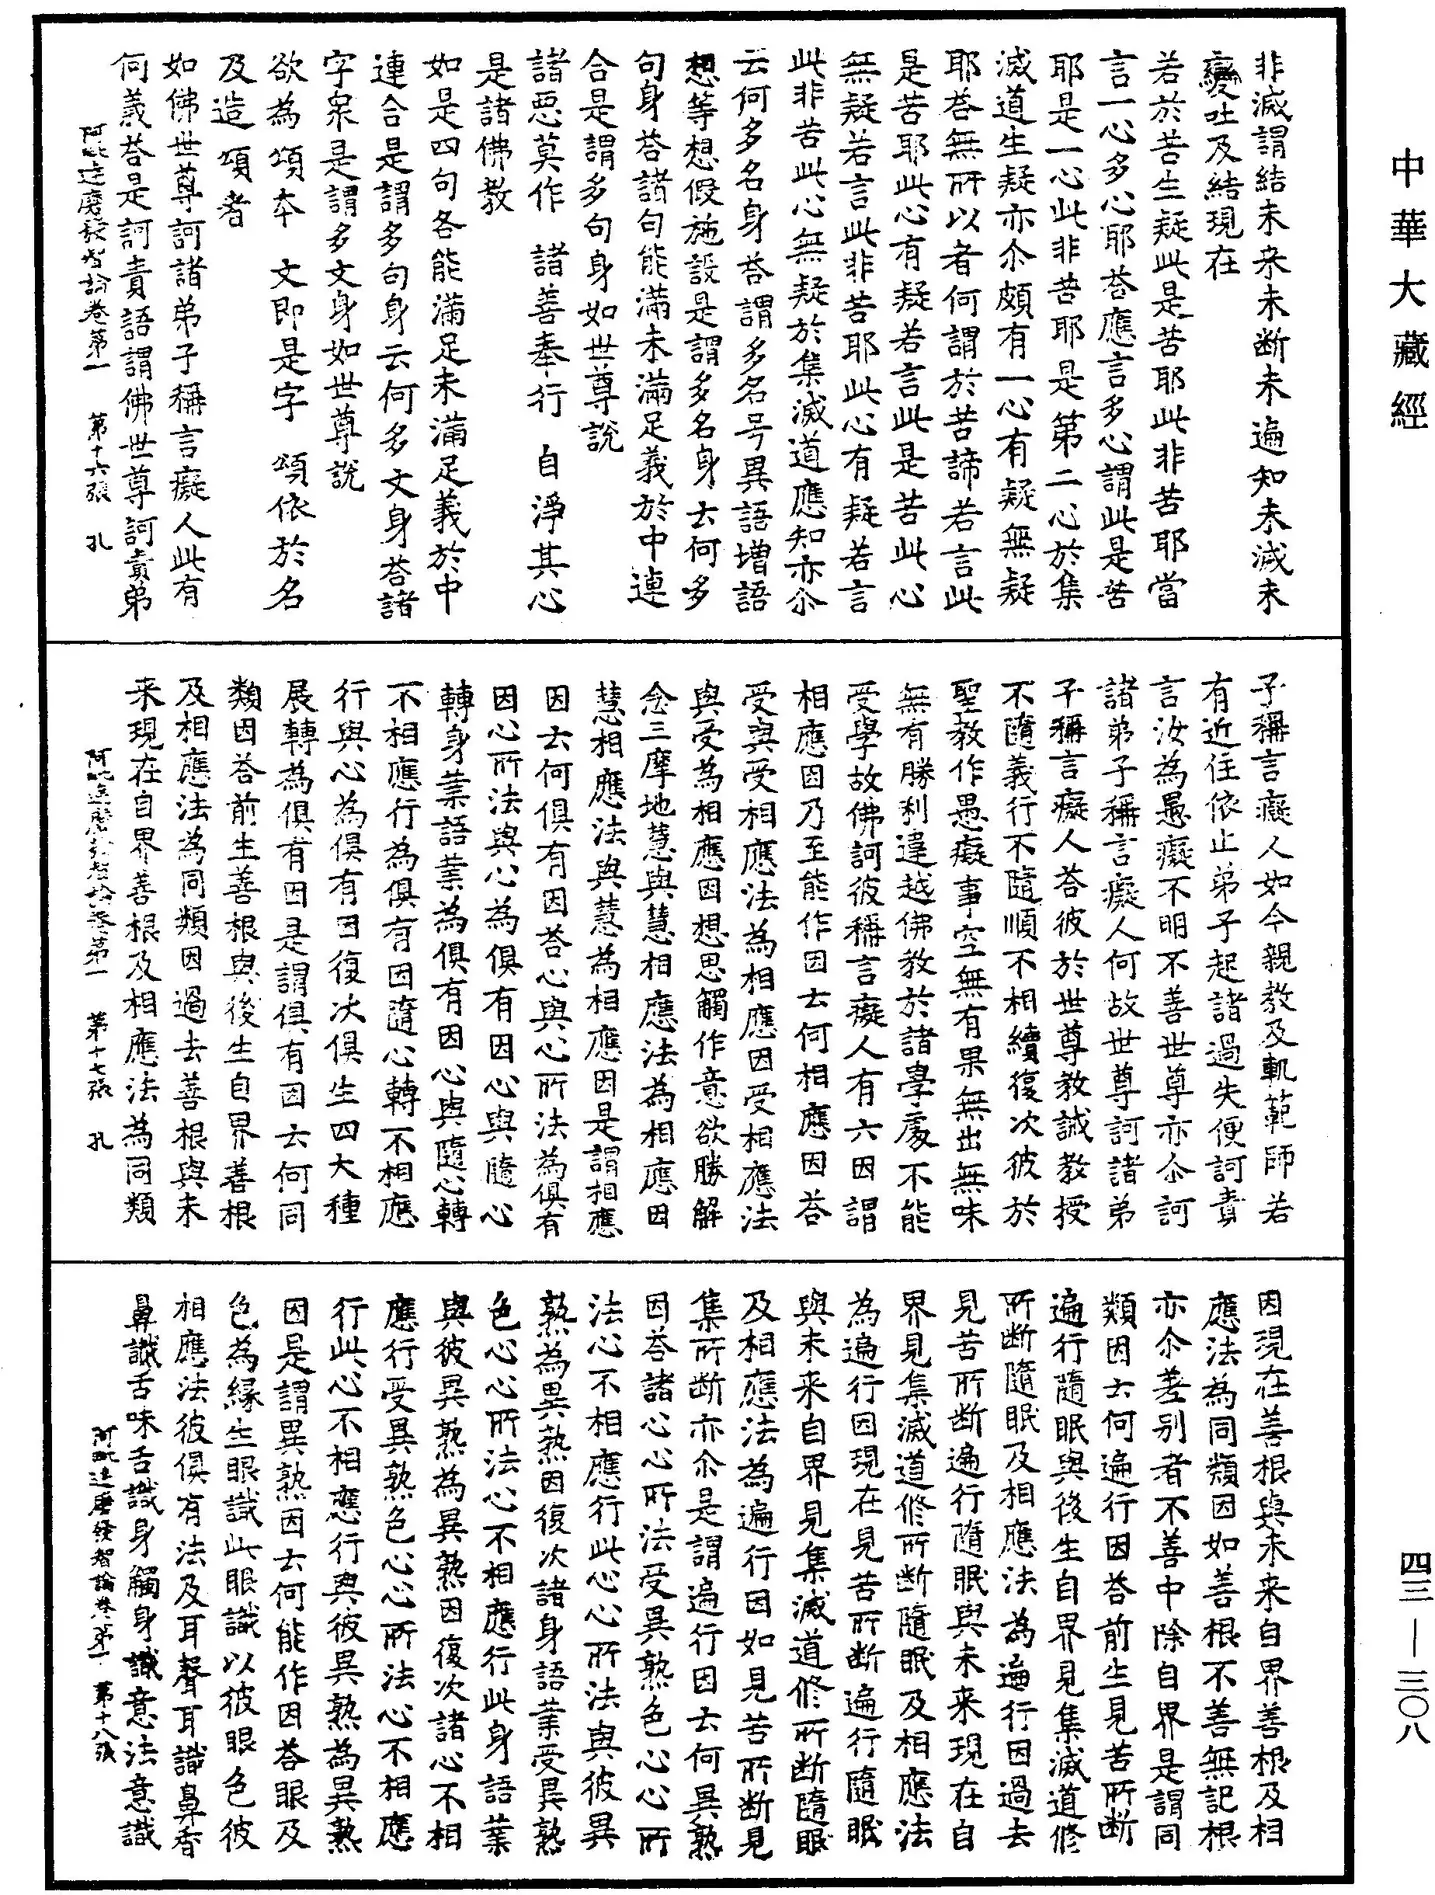 中華大藏經
非滅謂結未来未断未遍知未滅未
變吐及結現在
若於苦生疑此是苦耶此非苦耶當
言一心多心耶荅應言多心謂此是苦
耶是一心此非苦耶是第二心於集
滅道生疑亦尒頗有一心有疑無疑
耶荅無所以者何謂於苦諦若言此
是苦耶此心有疑若言此是苦此心
無疑若言此非苦耶此心有疑若言
此非苦此心無疑於集滅道應知亦尒
云何多名身荅謂多名号異語增語
想等想假施設是謂多名身云何多
句身荅諸句能滿未滿足義於中連
合是謂多句身如世尊說
諸惡莫作　諸善奉行　自淨其心
是諸佛教
如是四句各能滿足未滿足義於中
連合是謂多句身云何多文身荅諸
字衆是謂多文身如世尊說
欲為頌本　文即是字　頌依於名
及造頌者
如佛世尊訶諸弟子稱言癡人此有
何義荅是訶責語謂佛世尊訶責弟
阿毗达磨發智論卷第一　第十六張　孔
子稱言癡人如今親教及軌範師若
有近住依止弟子起諸過失便訶責
言汝為愚癡不明不善世尊亦尒訶
諸弟子稱言癡人何故世尊訶諸弟
子稱言癡人荅彼於世尊教誡教授
不隨義行不隨順不相續復次彼於
聖教作愚癡事空無有果無出無味
無有勝利違越佛教於諸學處不能
受學故佛訶彼稱言癡人有六因謂
相應因乃至能作因云何相應因荅
受與受相應法為相應因受相應法
與受為相應因想思觸作意欲勝解
念三摩地慧與慧相應法為相應因
慧相應法與慧為相應因是謂相應
因云何俱有因荅心與心所法為俱有
因心所法與心為俱有因心與隨心
轉身業語業為俱有因心與隨心轉
不相應行為俱有因隨心轉不相應
行與心為俱有因復次俱生四大種
展轉為俱有因是謂俱有因云何同
類因荅前生善根與後生自界善根
及相應法為同類因過去善根與未
来現在自界善根及相應法為同類
阿毗达磨發智論卷第一　第十七張　孔
因現在善根與未来自界善根及相
應法為同類因如善根不善無記根
亦尒差别者不善中除自界是謂同
類因云何遍行因荅前生見苦所断
遍行隨眠與後生自界見集滅道修
所断隨眠及相應法為遍行因過去
見苦所断遍行隨眠與未来現在自
界見集滅道修所断隨眠及相應法
為遍行因現在見苦所断遍行隨眠
與未来自界見集滅道修所断隨眠
及相應法為遍行因如見苦所断見
集所断亦尒是謂遍行因云何異熟
因荅諸心心所法受異熟色心心所
法心不相應行此心心所法與彼異
熟為異熟因復次諸身語業受異熟
色心心所法心不相應行此身語業
與彼異熟為異熟因復次諸心不相
應行受異熟色心心所法心不相應
行此心不相應行與彼異熟為異熟
因是謂異熟因云何能作因荅眼及
色為緣生眼識此眼識以彼眼色彼
相應法彼俱有法及耳聲耳識鼻香
鼻識舌味舌識身觸身識意法意識
阿毗达磨發智論卷第一　第十八張
四三—三〇八